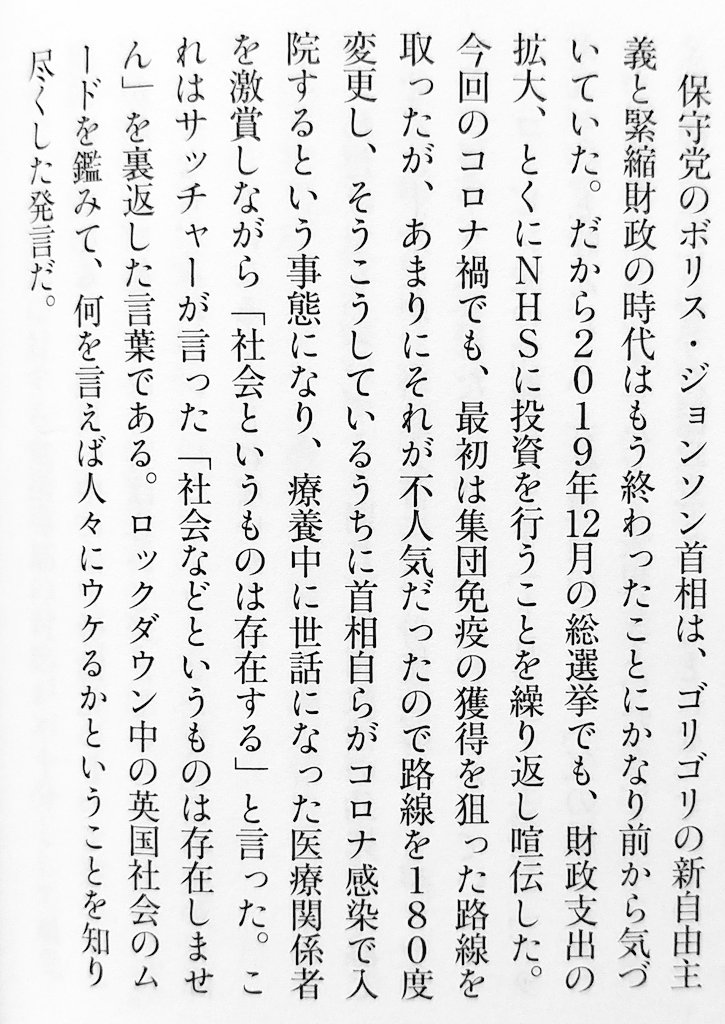 保守党のボリス・ジョンソン首相は、ゴリゴリの新自由主
義と緊縮財政の時代はもう終わったことにかなり前から気づ
いていた。だから2019年12月の総選挙でも、財政支出の
拡大、とくにNHSに投資を行うことを繰り返し喧伝した。
今回のコロナ禍でも、最初は集団免疫の獲得を狙った路線を
取ったが、あまりにそれが不人気だったので路線を180度
変更し、そうこうしているうちに首相自らがコロナ感染で入
院するという事態になり、療養中に世話になった医療関係者
を激賞しながら「社会というものは存在する」と言った。こ
れはサッチャーが言った「社会などというものは存在しませ
ん」を裏返した言葉である。ロックダウン中の英国社会のム
ードを鑑みて、何を言えば人々にウケるかということを知り
尽くした発言だ。